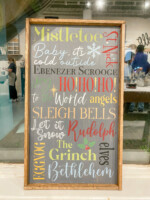 Mistletoe
St. Nick
Baby it's
cold outside
EBENEZER SCROOGE
HO HO HO
to World angels
SLEIGH BELLS
Let it
Snow
Rudolph
EGGNOG
The
Grinch
elves
Bethlehem